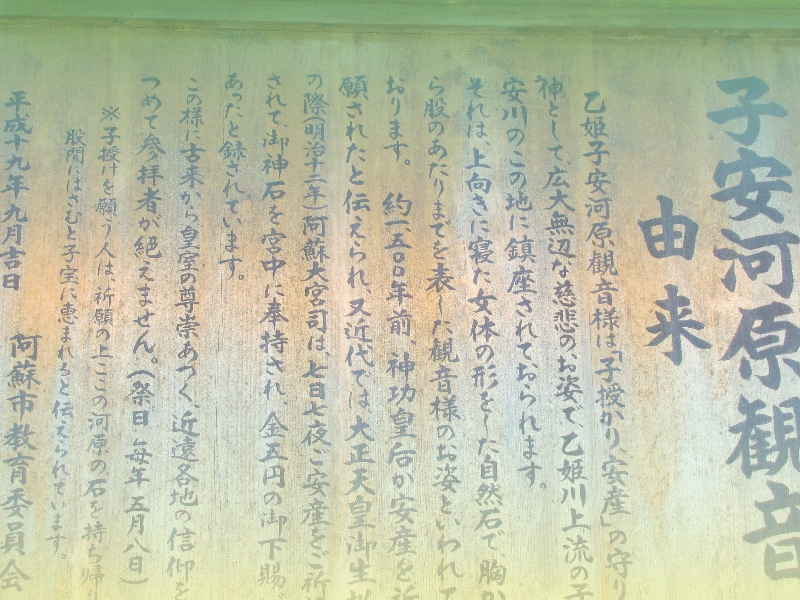 子安河原観音
由来
乙姫子安河原観音様は「子授かり、安産」の守り
神として、広大無辺な慈悲のお姿で、乙姫川上流の子
安川のこの地に鎮座されておられます。
それは、上向きに寝た女体の形をした自然石で、胸か
ら股のあたりまでを表した観音様のお姿といわれて
おります。約一、五〇〇年前、神功皇后が安産を祈
願されたと伝えられ、又近代では、大正天皇御生誕
の際(明治十二年)阿蘇大宮司は、七日七夜ご安産をご祈
されて、御神石を宮中に奉持され、金五円の御下賜が
あったと録されています。
この様に古来から皇室の尊崇あつく、近遠各地の信仰を
つめて参拝者が絶えません。(祭日 毎年 五月八日)
※子授けを願う人は、祈願の上ここの河原の石を持ち帰り
股間にはさむと子宝に恵まれると伝えられています。
平成十九年九月吉日 阿蘇市教育委員会